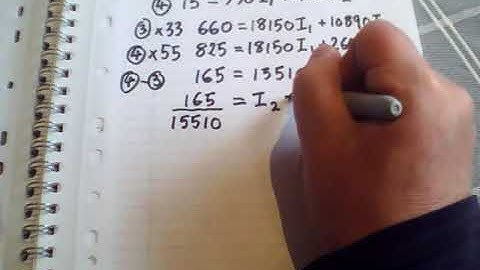 ④ 15 = 330 I₁
③ ×33 660 = 18150 I₁ + 10890 I
④ ×55 825 = 18150 I₁ + 26
④-③ 165 = 1551
165/15510 = I₂